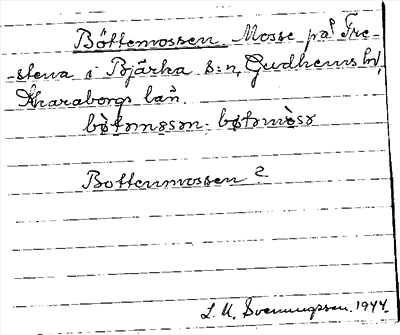 Böttemossen. Mosse på Fre-
-stena i Bjärka s:n, Gudhems hd,
Skaraborgs län.
bø̀təmɷsən. bøtəmɷ̀sə
Bottenmossen?
L. M. Svenungsson. 1944.